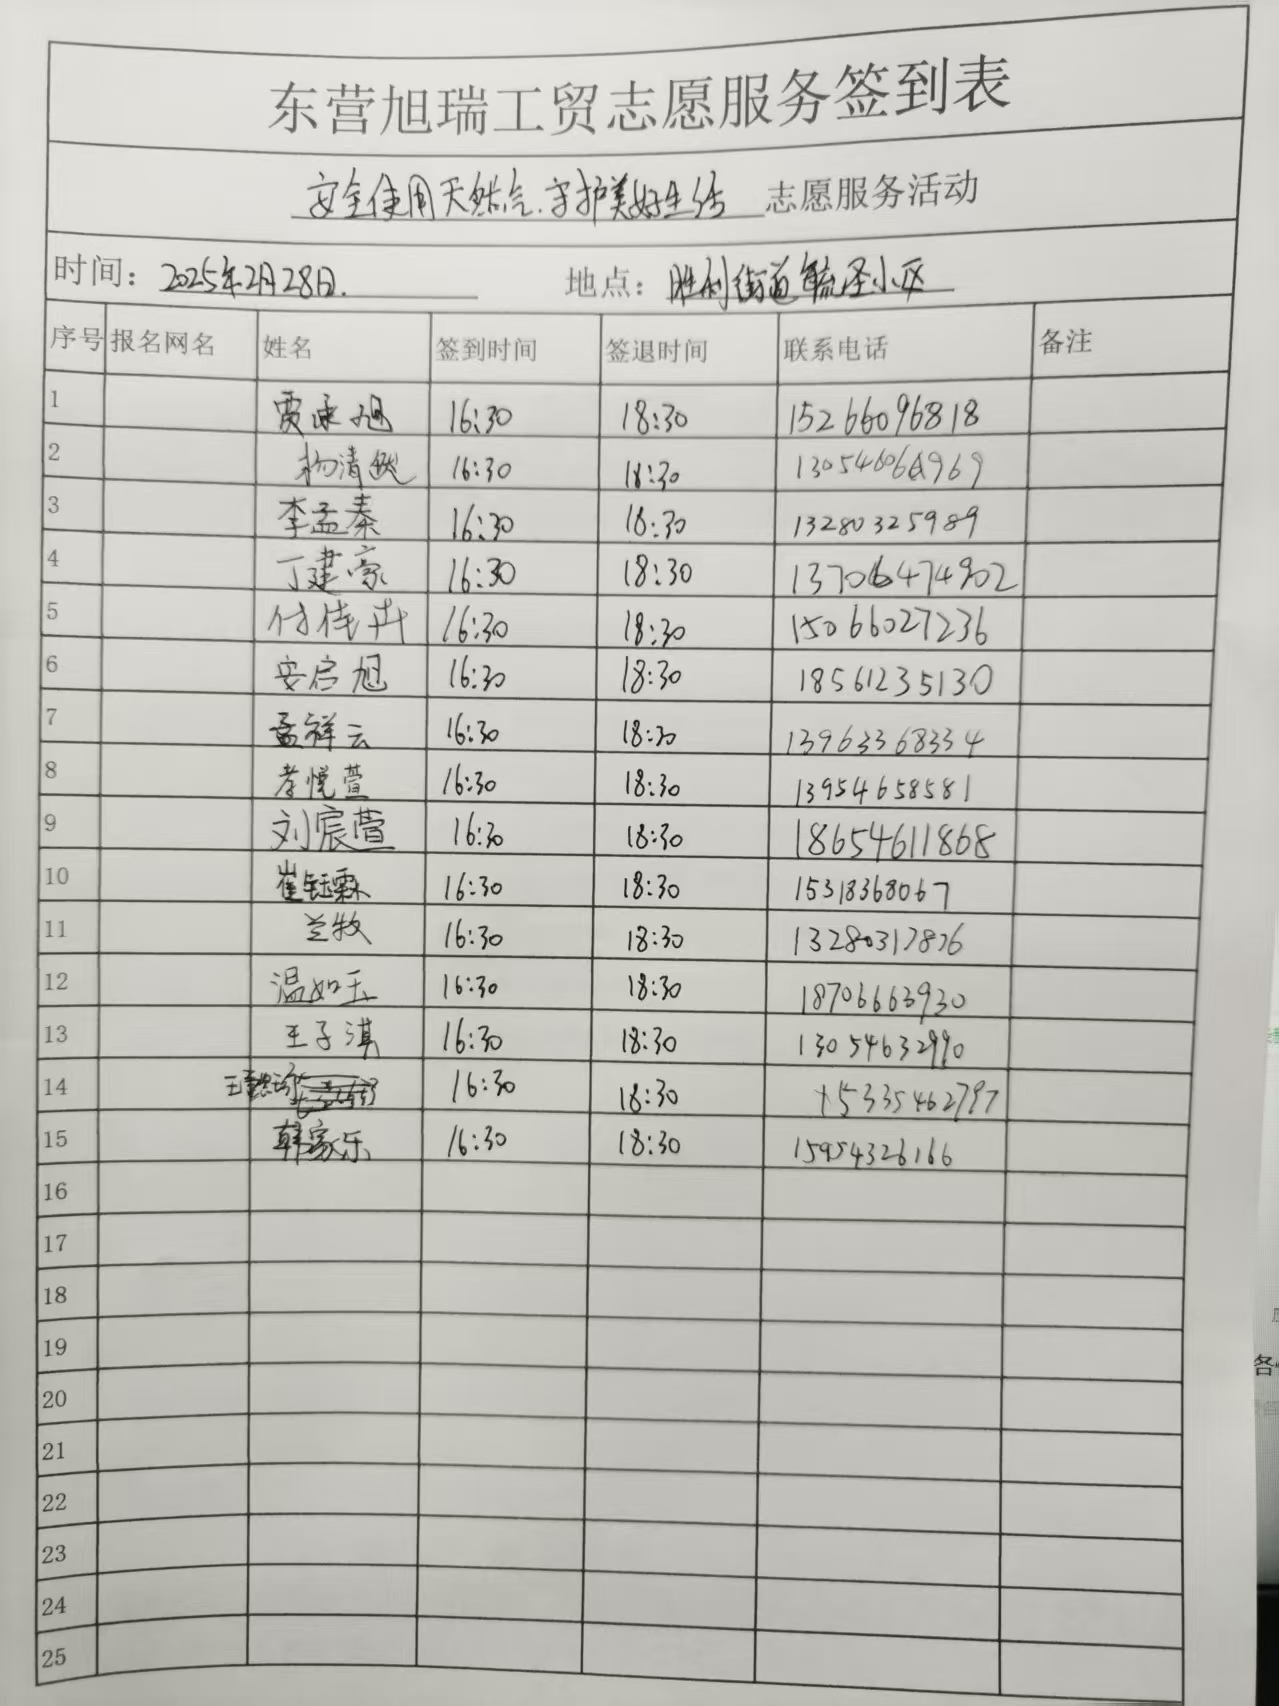 东营旭瑞工贸志愿服务签到表
安全使用天然气.守护美好生活 志愿服务活动
时间：2025年2月28日. 地点：胜利街道毓圣小区
序号 报名网名 姓名 签到时间 签退时间 联系电话 备注
1 贾承旭 16:30 18:30 15266096818
2 杨清 16:30 18:30
3 李孟秦 16:30 18:30 13280325989
4 丁建豪 16:30 18:30 13706474902
5 付佳卉 16:30 18:30 15066027236
6 安启旭 16:30 18:30 18561235130
7 孟祥云 16:30 18:30 13963368334
8 李悦萱 16:30 18:30 13954658581
9 刘宸萱 16:30 18:30 18654611868
10 崔钰霖 16:30 18:30 15318368067
11 兰牧 16:30 18:30 13280317876
12 温如玉 16:30 18:30 18706663930
13 王子淇 16:30 18:30 13054632990
14 16:30 18:30 15335462797
15 韩家乐 16:30 18:30 15954326166
16
17
18
19
20
21
22
23
24
25